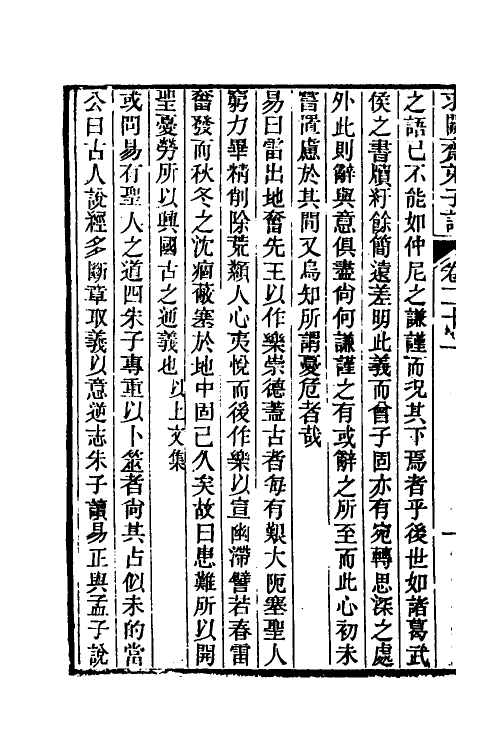 求闕齋弟子記 卷二十
之語已不能如仲尼之謙謹而況其下焉者乎後世如諸葛武
侯之書牘紆餘簡遠差明此義而曾子固亦有宛轉思深之處
外此則辭與意俱盡尙何謙謹之有或辭之所至而此心初未
嘗置慮於其間又烏知所謂憂危者哉
易曰雷出地奮先王以作樂崇德蓋古者每有艱大阨塞聖人
窮力畢精削除荒纇人心夷悅而後作樂以宣幽滯譬若春雷
奮發而秋冬之沈痼蔽塞於地中固已久矣故曰患難所以開
聖憂勞所以興國古之通義也以上文集
或問易有聖人之道四朱子專重以卜筮者尙其占似未的當
公曰古人說經多斷章取義以意逆志朱子讀易正與孟子說